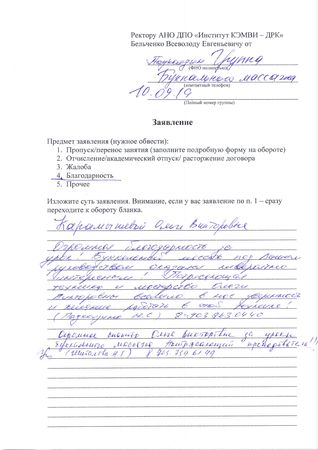 Ректору АНО ДПО «Институт КЭМВИ – ДРК»
Бельченко Всеволоду Евгеньевичу от
Группа
(ФИО полностью)
Буккального массажа
(контактный телефон)
10.09.19
(Полный номер группы)
Заявление
Предмет заявления (нужное обвести):
1. Пропуск/перенос занятия (заполните подробную форму на обороте)
2. Отчисление/академический отпуск/ расторжение договора
3. Жалоба
4. Благодарность
5. Прочее
Изложите суть заявления. Внимание, если у вас заявление по п. 1 – сразу
переходите к обороту бланка.
Карамышевой Ольге Викторовне
Огромная благодарность за
уроки Буккального массажа под Вашим
руководством
интересными!
технику и мастерство Ольги
Викторовны вселило в нас уверенность
и желание работать в этой
8-903
Огромное спасибо Ольге Викторовне за уроки
буккального массажа преподаватель!!!